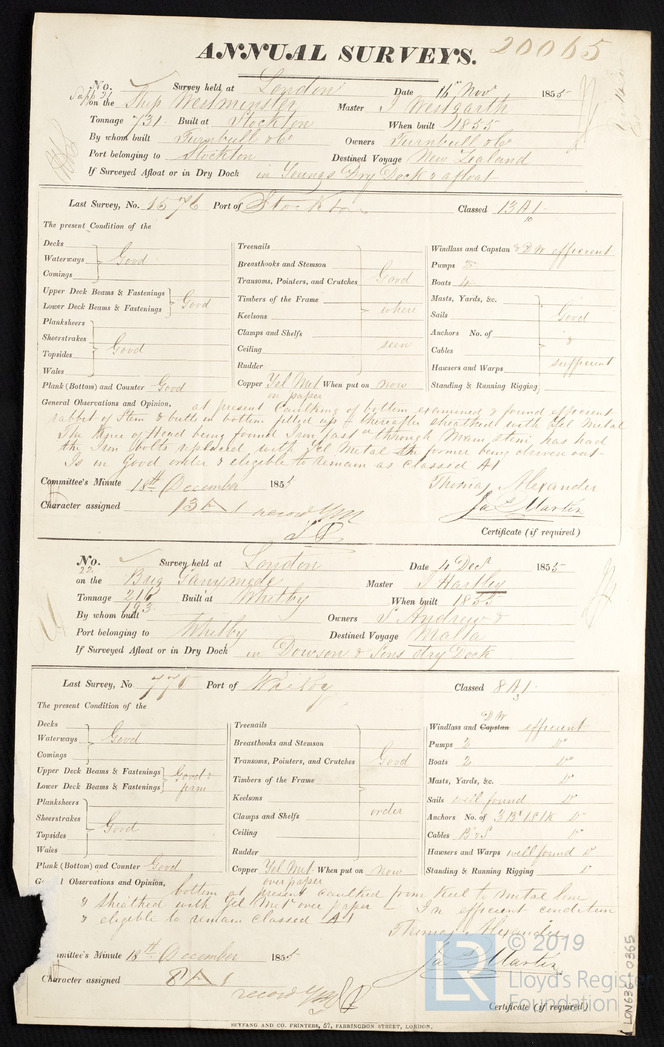 ANNUAL SURVEYS. 20065
No. Survey held at London Date 15 Nov 1855
on the Ship Westminster Master J Westgarth
Tonnage 731 Built at Stockton When built 1855
By whom built Turnbull & Co Owners Turnbull & Co
Port belonging to Stockton Destined Voyage New Zealand
If Surveyed Afloat or in Dry Dock in Youngs Dry Dock & afloat
Last Survey, No. 1576 Port of Stockton Classed 13 A1
10
The present Condition of the
Decks
Waterways Good
Comings
Upper Deck Beams & Fastenings
Lower Deck Beams & Fastenings Good
Planksheers
Sheerstrakes
Topsides Good
Wales
Plank (Bottom) and Counter Good
Treenails
Breasthooks and Stemson
Transoms, Pointers, and Crutches Good
Timbers of the Frame where
Keelsons
Clamps and Shelfs
Ceiling seen
Rudder
Copper Yel Met When put on now
on paper
Windlass and Capstan & PW efficient
Pumps
Boats 4
Masts, Yards, &c.
Sails Good
Anchors No. of &
Cables
Hawsers and Warps sufficient
Standing & Running Rigging
General Observations and Opinion, at present Caulking of bottom examined & found efficient
rabbet of Stem & butts in bottom filled up & thereafter sheathed with Yel Metal
The Knee of Head being found Iron fastd through Main stem, has had
the Iron bolts replaced with Yel Metal the former being driven out
Is in Good order & eligible to remain as Classed A1
Committee's Minute 18th December 1855 Thomas Alexander
Character assigned 13 A 1 record YM Jas Martin
Certificate (if required)
No. Survey held at London Date 4 Decr 1855
22
on the Brig Ganymede Master J Hartley
Tonnage 216 Built at Whitby When built 1855
193
By whom built Owners S. Andrew &
Port belonging to Whitby Destined Voyage Malta
If Surveyed Afloat or in Dry Dock in Dowson & Sons dry Dock
Last Survey, No. 776 Port of Whitby Classed 8 A1
3
The present Condition of the
Decks
Waterways Good
Comings
Upper Deck Beams & Fastenings Good &
Lower Deck Beams & Fastenings firm
Planksheers
Sheerstrakes Good
Topsides
Wales
Plank (Bottom) and Counter Good
Treenails
Breasthooks and Stemson
Transoms, Pointers, and Crutches Good
Timbers of the Frame
Keelsons
Clamps and Shelfs order
Ceiling
Rudder
Copper Yel Met When put on now
over paper
PW
Windlass and Capstan efficient
Pumps 2 Do
Boats 2 Do
Masts, Yards, &c. Do
Sails well found Do
Anchors No. of 3 Br 1S 1K Do
Cables B & S Do
Hawsers and Warps well found Do
Standing & Running Rigging Do
General Observations and Opinion,
bottom at present caulked from Keel to metal line
& sheathed with Yel Metl over paper – In efficient condition
& eligible to remain classed A1
Thomas Alexander
mmittee's Minute 18th December 1855 Jas Martin
Character assigned 8 A 1
record YM
Certificate (if required)
SEYFANG AND CO. PRINTERS, 57, FARRINGDON STREET, LONDON.
LON636-0365
LR © 2019
Lloyd's Register
Foundation